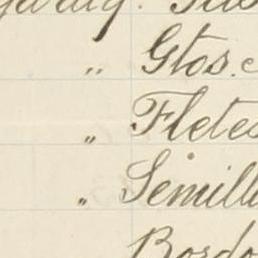 " Gtos. c
" Fletes
" Semill
Bordo